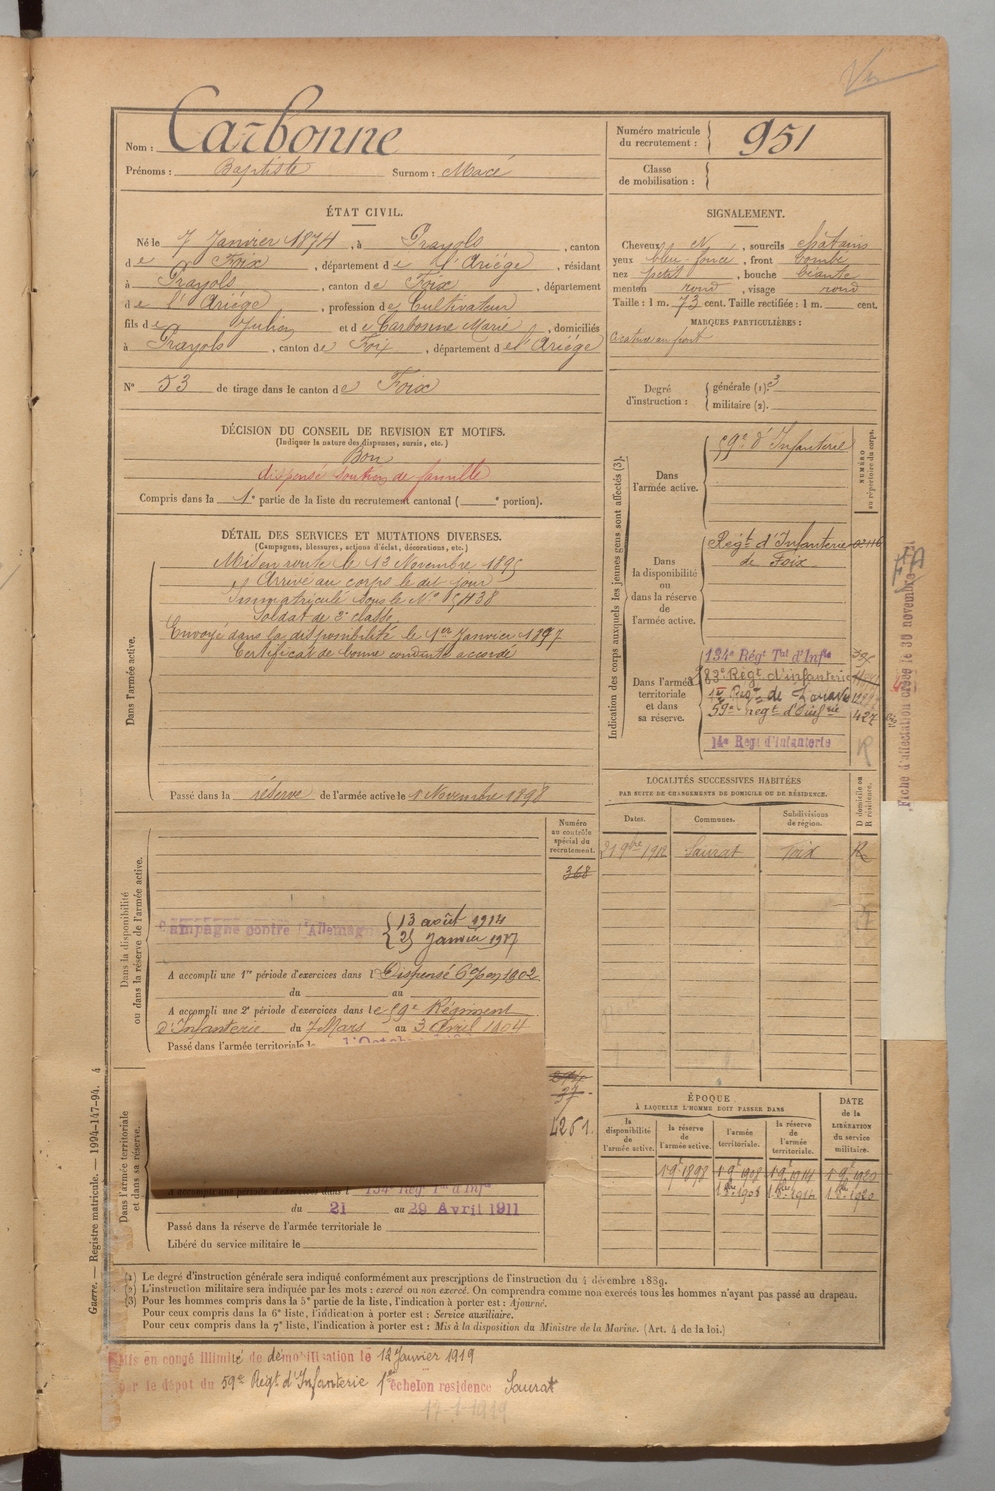 Nom : Carbonne
Prénoms : Baptiste Surnom : Macé
Numéro matricule
du recrutement : 951
Classe
de mobilisation :
ÉTAT CIVIL.
Né le 7 Janvier 1874, à Prayols, canton
de Foix, département de l'Ariége, résidant
à Prayols, canton de Foix, département
de l'Ariége, profession de Cultivateur
fils de Julien et de Carbonne Marie, domiciliés
à Prayols, canton de Foix, département de l'Ariége
N° 53 de tirage dans le canton de Foix
SIGNALEMENT.
Cheveux N, sourcils châtains
yeux bleu-foncé, front bombé
nez petit, bouche béante
menton rond, visage rond
Taille : 1 m. 73 cent. Taille rectifiée : 1 m. cent.
MARQUES PARTICULIÈRES :
Cicatrice au front
Degré
d'instruction :
générale (1). 3
militaire (2).
DÉCISION DU CONSEIL DE REVISION ET MOTIFS.
(Indiquer la nature des dispenses, sursis, etc.)
Bon
dispensé soutien de famille
Compris dans la 1e partie de la liste du recrutement cantonal ( e portion).
DÉTAIL DES SERVICES ET MUTATIONS DIVERSES.
(Campagnes, blessures, actions d'éclat, décorations, etc.)
Dans l'armée active.
Mis en route le 13 Novembre 1895
Arrivé au corps le dit jour
Immatriculé sous le N°
Soldat de 2e classe
Envoyé dans la disponibilité le 1er Janvier 1897
Certificat de bonne conduite accordé
Passé dans la réserve de l'armée active le 1 Novembre 1898
Indication des corps auxquels les jeunes gens sont affectés (3).
NUMÉRO
au répertoire du corps.
Dans
l'armée active.
59e d'Infanterie
Dans
la disponibilité
ou
dans la réserve
de
l'armée active.
Régt d'Infanterie
de Foix
Dans l'armée
territoriale
et dans
sa réserve.
134e Régt Tal d'Infie
83e Régt d'infanterie
Régt de Zouaves
59e régt d'Infrie 427
14e Régt d'infanterie R
Fiche d'affectation créée le 30 novembre
LOCALITÉS SUCCESSIVES HABITÉES
PAR SUITE DE CHANGEMENTS DE DOMICILE OU DE RÉSIDENCE.
Dates. Communes. Subdivisions
de région.
D domicile ou
R résidence.
Saurat Foix R
Numéro
au contrôle
spécial du
recrutement.
368
Dans la disponibilité
ou dans la réserve de l'armée active.
Campagne contre l'Allemagne
13 août 1914
25 Janvier 1917
A accompli une 1re période d'exercices dans l Dispensé 1902
du au
A accompli une 2e période d'exercices dans le 59e Régiment
d'Infanterie du 7 Mars au 3 Avril 1904
Passé dans l'armée territoriale le
37
4261.
Dans l'armée territoriale
et dans sa réserve.
134e Régt Tal d'Infie
du 21 au 29 Avril 1911
Passé dans la réserve de l'armée territoriale le
Libéré du service militaire le
ÉPOQUE
À LAQUELLE L'HOMME DOIT PASSER DANS
la
disponibilité
de
l'armée active.
la réserve
de
l'armée active.
l'armée
territoriale.
la réserve
de
l'armée
territoriale.
DATE
de la
LIBÉRATION
du service
militaire.
1 9e 1898 1 9e 1908 1 9e 1914 1 9e 1920
1 8bre 1908 1 8bre 1914 1 8bre 1920
Guerre. — Registre matricule. — 1994-147-94. 4
(1) Le degré d'instruction générale sera indiqué conformément aux prescriptions de l'instruction du 4 décembre 1889.
(2) L'instruction militaire sera indiquée par les mots : exercé ou non exercé. On comprendra comme non exercés tous les hommes n'ayant pas passé au drapeau.
(3) Pour les hommes compris dans la 5e partie de la liste, l'indication à porter est : Ajourné.
Pour ceux compris dans la 6e liste, l'indication à porter est : Service auxiliaire.
Pour ceux compris dans la 7e liste, l'indication à porter est : Mis à la disposition du Ministre de la Marine. (Art. 4 de la loi.)
Mis en congé illimité de démobilisation le 12 Janvier 1919
par le dépot du 59e Régt d'Infanterie 1er échelon residence Saurat
17-1-1919